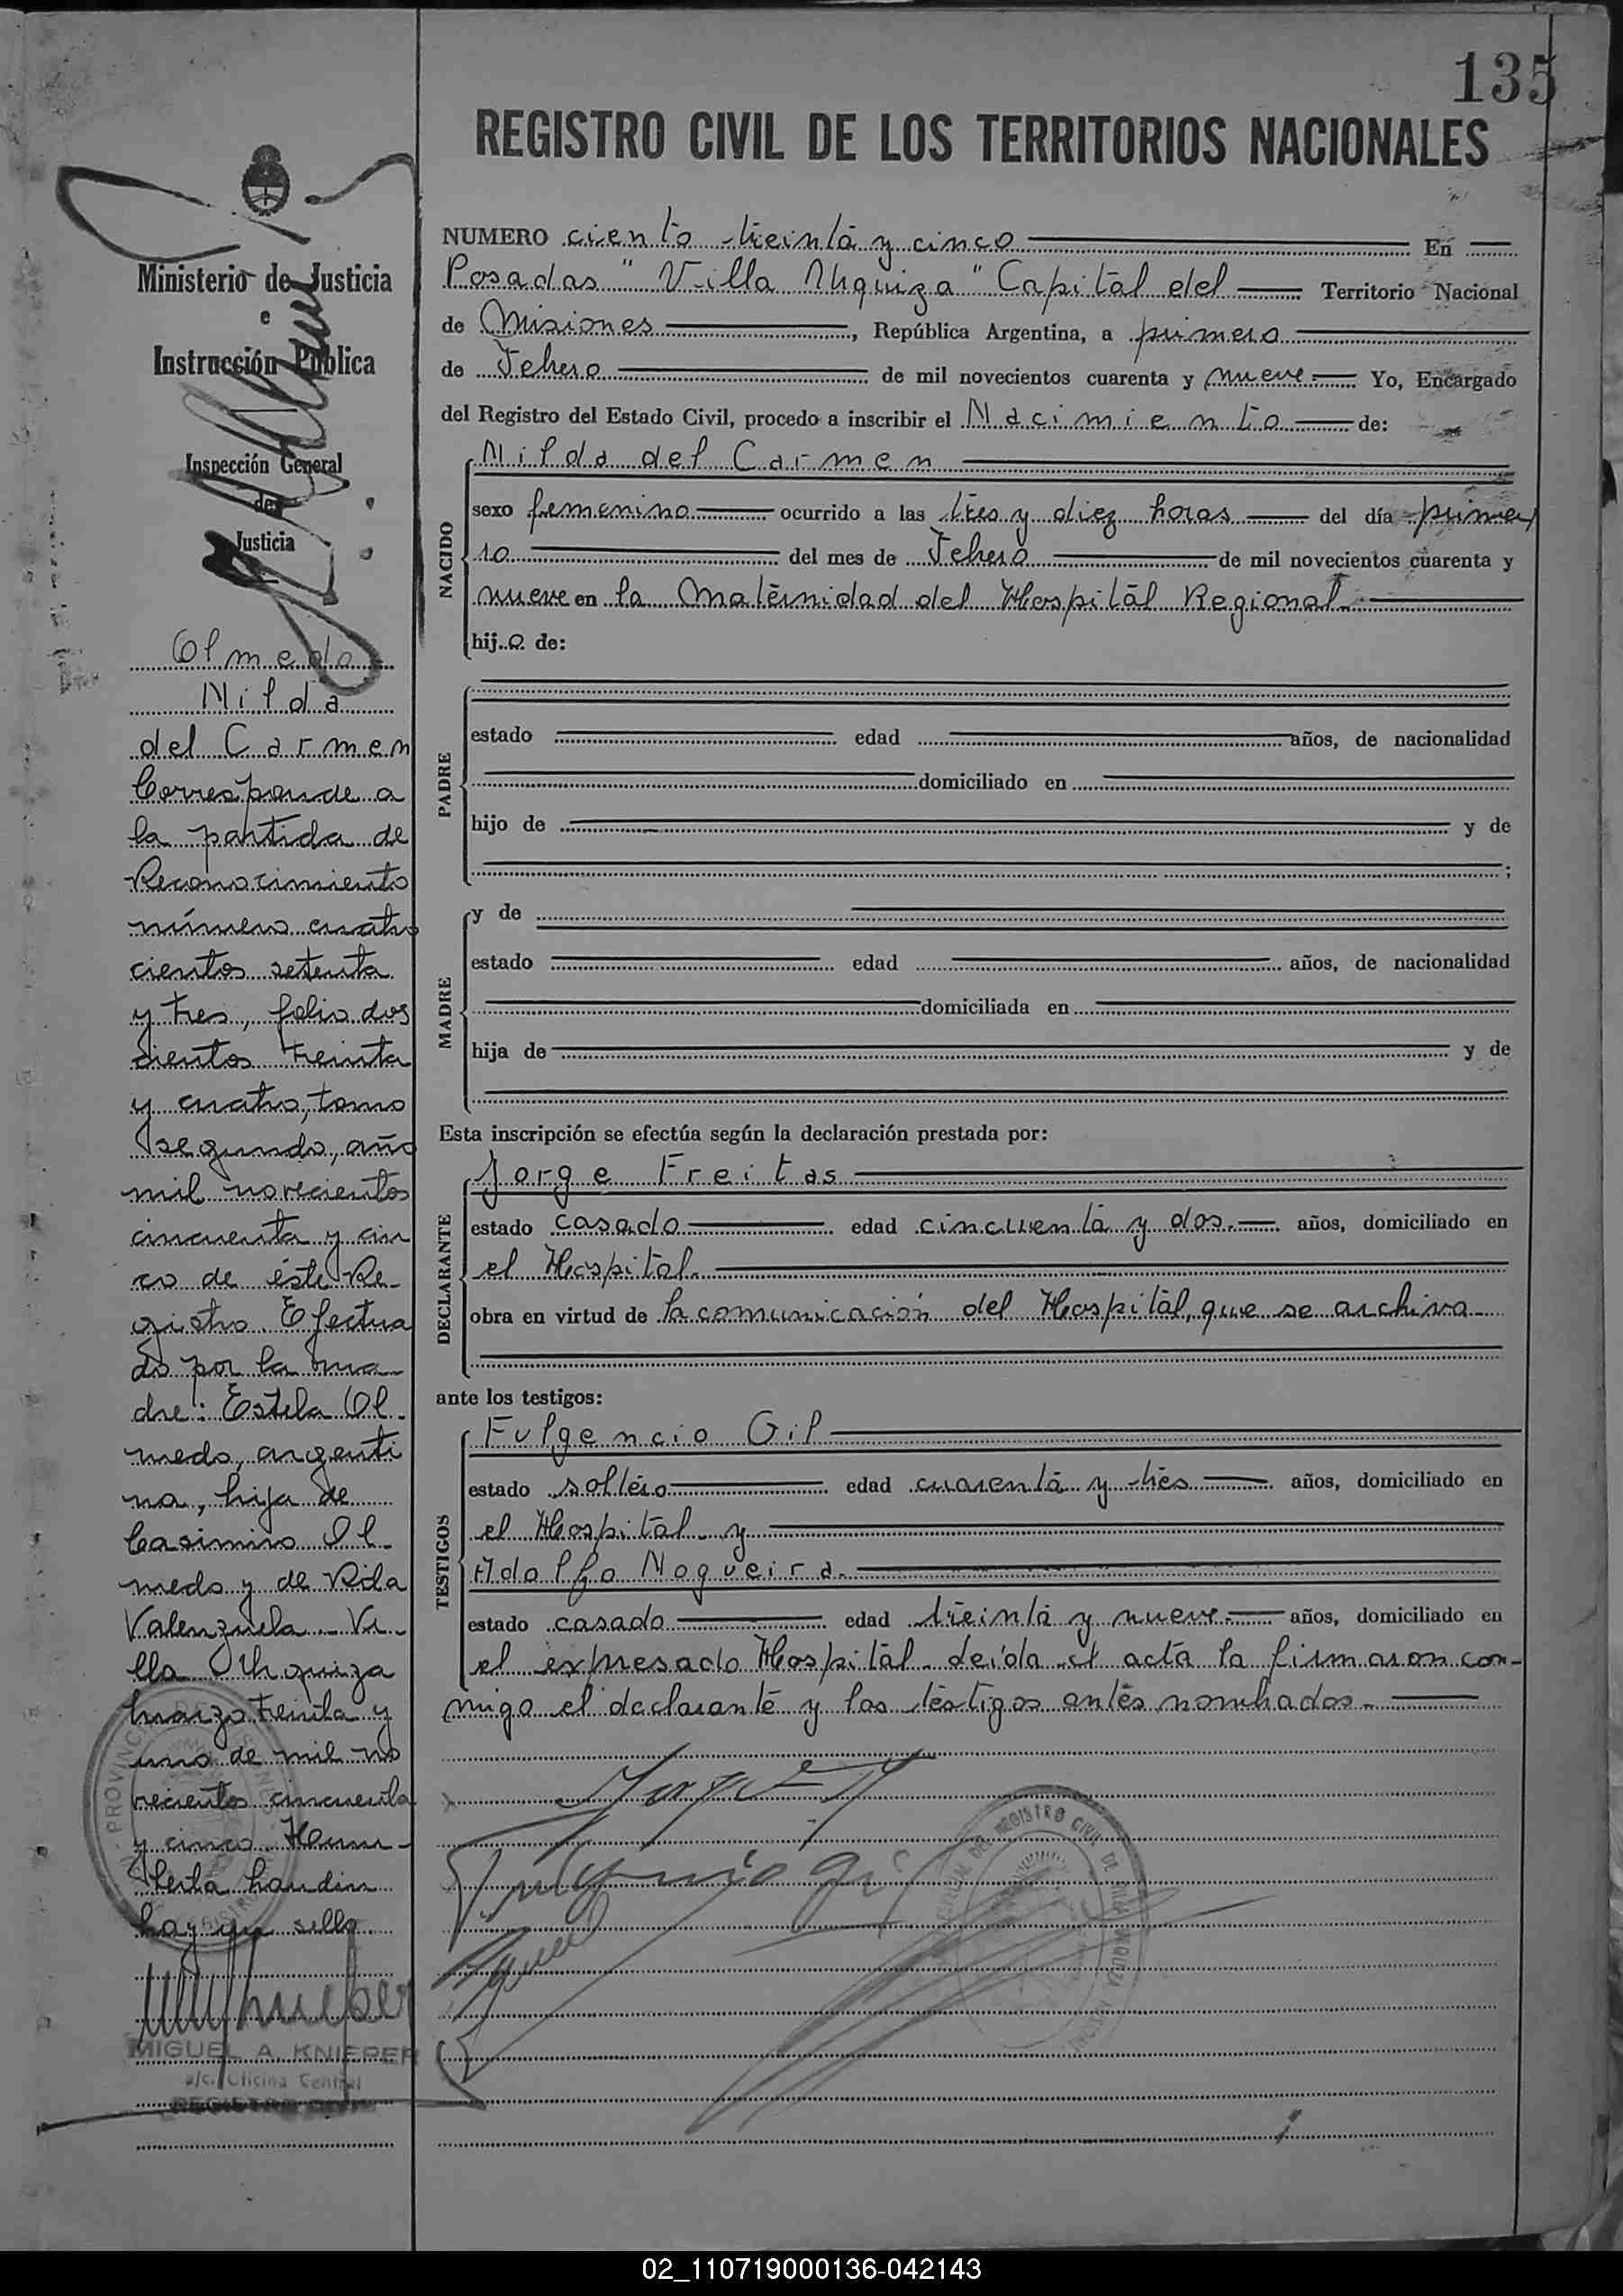 135
REGISTRO CIVIL DE LOS TERRITORIOS NACIONALES
Ministerio de Justicia
e
Instrucción Pública
Inspección General
de
Justicia
Olmedo
Nilda
del Carmen
Corresponde a
la partida de
Reconocimiento
número cuatro
cientos setenta
y tres, folio dos
cientos treinta
y cuatro, tomo
segundo, año
mil novecientos
cincuenta y cin
co de éste Re-
gistro. Efectua
do por la ma-
dre: Estela Ol-
medo, argenti
na, hija de
Casimiro Ol-
medo y de Rida
Valenzuela. Vi-
lla Urquiza
marzo treinta y
uno de mil no
vecientos cincuenta
y cinco.
hay un sello.
MIGUEL A. KNIEPER
a/c. Oficina Central
REGISTRO CIVIL
NUMERO ciento treinta y cinco En
Posadas "Villa Urquiza" Capital del Territorio Nacional
de Misiones, República Argentina, a primero
de Febrero de mil novecientos cuarenta y nueve Yo, Encargado
del Registro del Estado Civil, procedo a inscribir el Nacimiento de:
NACIDO
Nilda del Carmen
sexo femenino ocurrido a las tres y diez horas del día prime
ro del mes de Febrero de mil novecientos cuarenta y
nueve en la Maternidad del Hospital Regional.
hij a de:
PADRE
estado edad años, de nacionalidad
domiciliado en
hijo de y de
;
MADRE
y de
estado edad años, de nacionalidad
domiciliada en
hija de y de
Esta inscripción se efectúa según la declaración prestada por:
DECLARANTE
Jorge Freitas
estado casado edad cincuenta y dos. años, domiciliado en
el Hospital.
obra en virtud de la comunicación del Hospital, que se archiva
ante los testigos:
TESTIGOS
Fulgencio Gil
estado soltero edad cuarenta y tres años, domiciliado en
el Hospital y
Adolfo Nogueira.
estado casado edad treinta y nueve años, domiciliado en
el expresado Hospital. Leída el acta la firmaron con-
migo el declarante y los testigos antes nombrados.
02_110719000136-042143